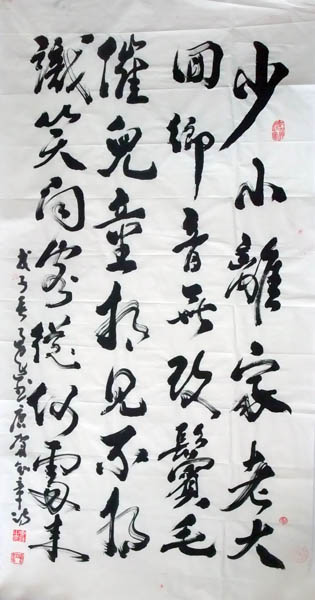 少小離家老大
囬鄉音無改鬢毛
催兒童相見不相
識笑問客從何處來
戊子 唐賀知章詩